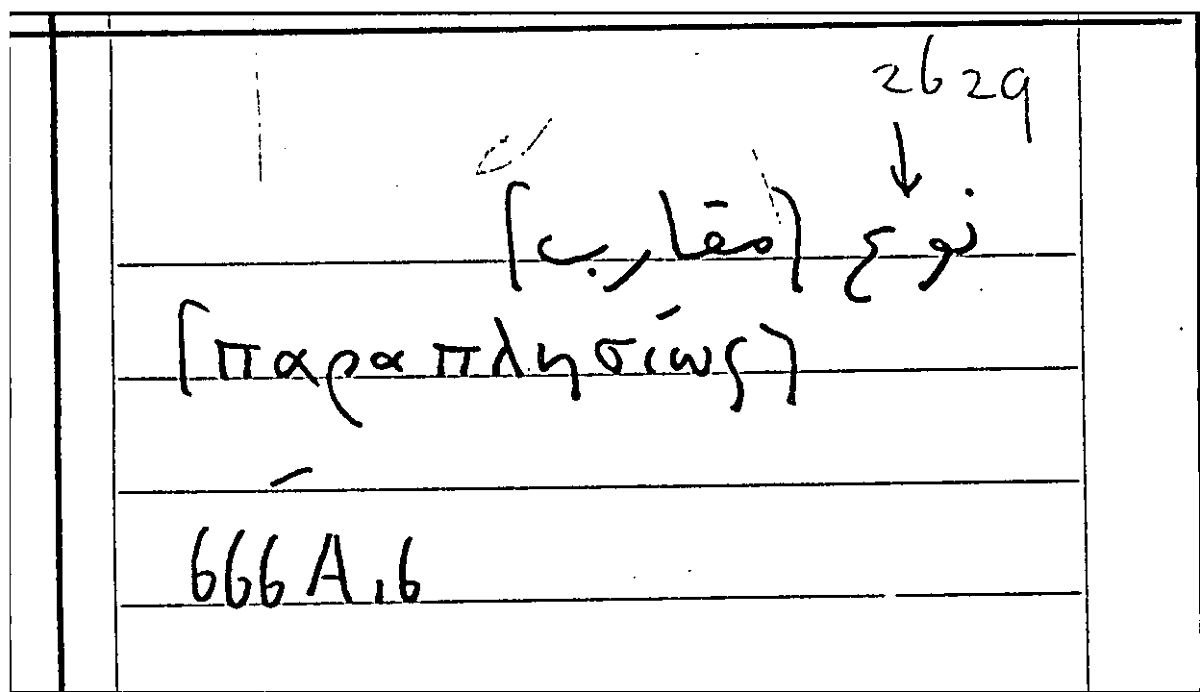 2629
↓
نوع [مقارب]
[παραπλησίως]
666A,6